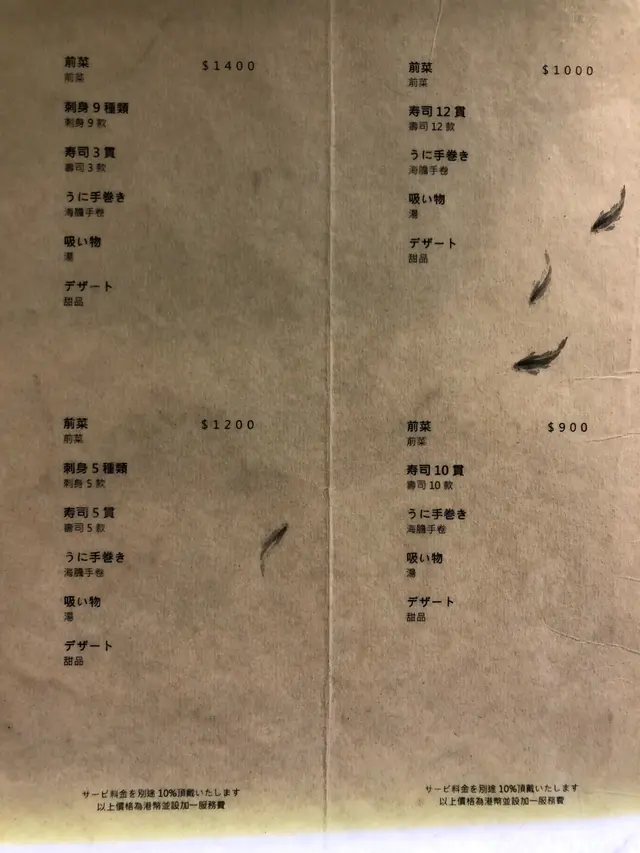 前菜 $1400
前菜
刺身 9 種類
刺身 9 款
寿司 3 貫
壽司 3 款
うに手巻き
海膽手卷
吸い物
湯
デザート
甜品
前菜 $1200
前菜
刺身 5 種類
刺身 5 款
寿司 5 貫
壽司 5 款
うに手巻き
海膽手卷
吸い物
湯
デザート
甜品
サービ料金を別途 10%頂戴いたします
以上價格為港幣並設加一服務費
前菜 $1000
前菜
寿司 12 貫
壽司 12 款
うに手巻き
海膽手卷
吸い物
湯
デザート
甜品
前菜 $900
前菜
寿司 10 貫
壽司 10 款
うに手巻き
海膽手卷
吸い物
湯
デザート
甜品
サービ料金を別途 10%頂戴いたします
以上價格為港幣並設加一服務費